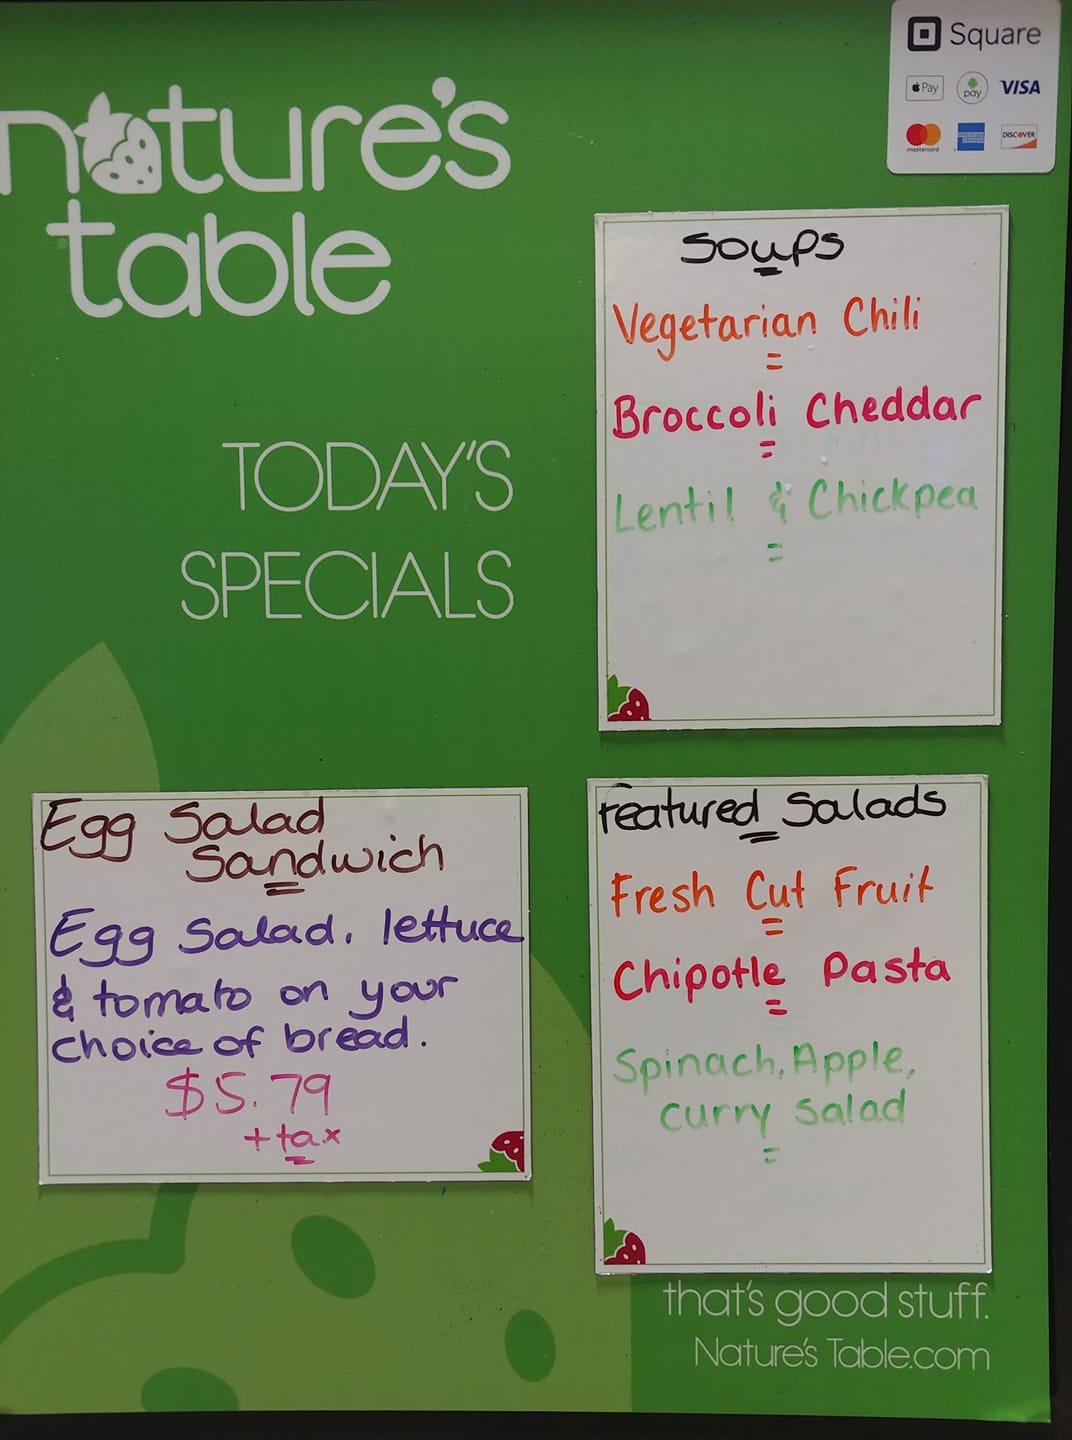 Square
Pay
pay
VISA
mastercard
AMERICAN EXPRESS
DISCOVER
nature's
table
TODAY'S
SPECIALS
Soups
Vegetarian Chili
Broccoli Cheddar
Lentil & Chickpea
Egg Salad
Sandwich
Egg Salad, lettuce
& tomato on your
choice of bread.
$5.79
+ tax
Featured Salads
Fresh Cut Fruit
Chipotle Pasta
Spinach, Apple,
Curry Salad
that's good stuff.
Nature's Table.com